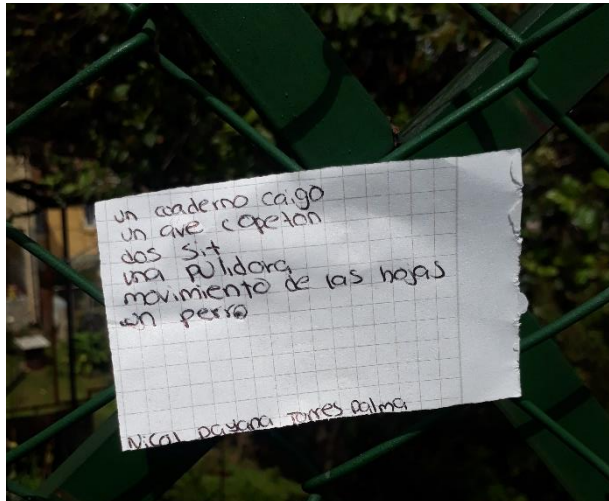 un cuaderno caigo
un ave copeton
dos sit
una pulidora
movimiento de las hojas
un perro
Nicol Dayana Torres Palma